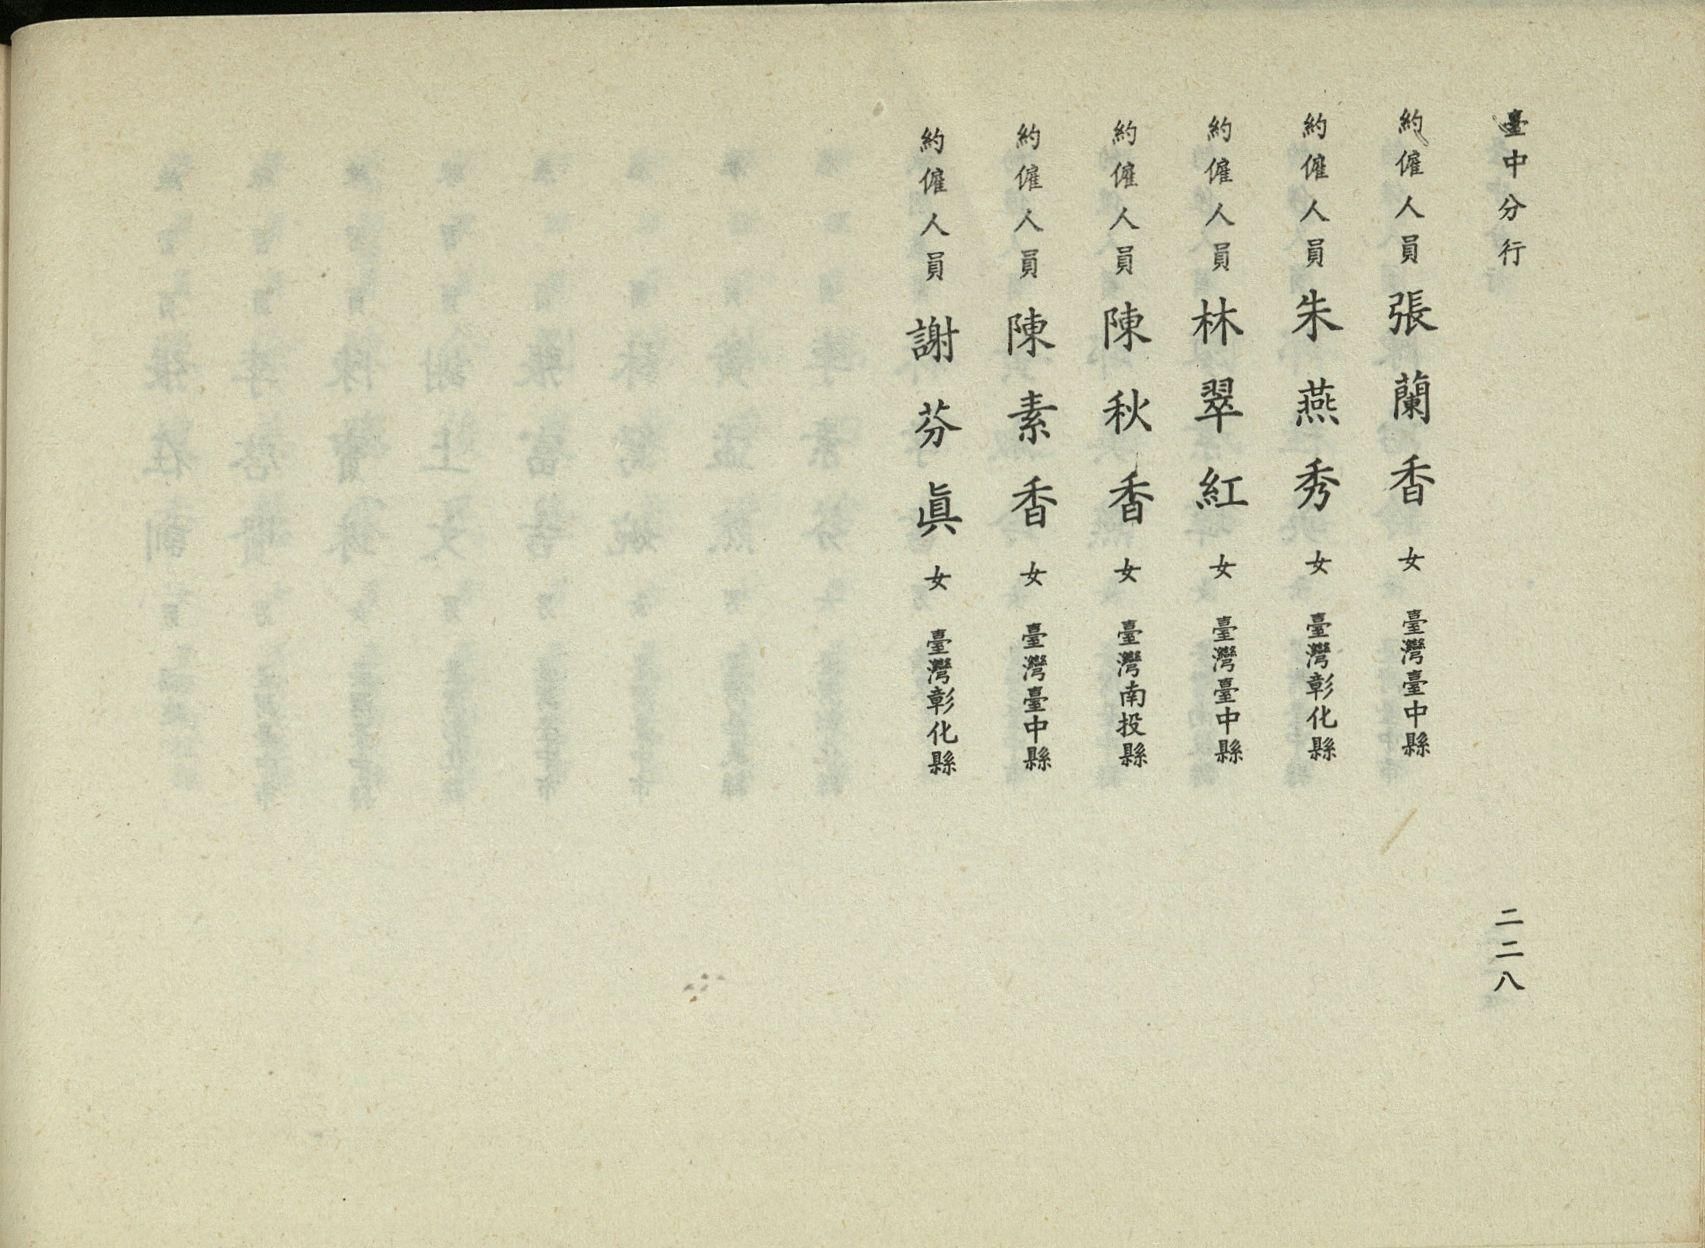 臺中分行
二二八
約僱人員 張蘭香 女 臺灣臺中縣
約僱人員 朱燕秀 女 臺灣彰化縣
約僱人員 林翠紅 女 臺灣臺中縣
約僱人員 陳秋香 女 臺灣南投縣
約僱人員 陳素香 女 臺灣臺中縣
約僱人員 謝芬眞 女 臺灣彰化縣